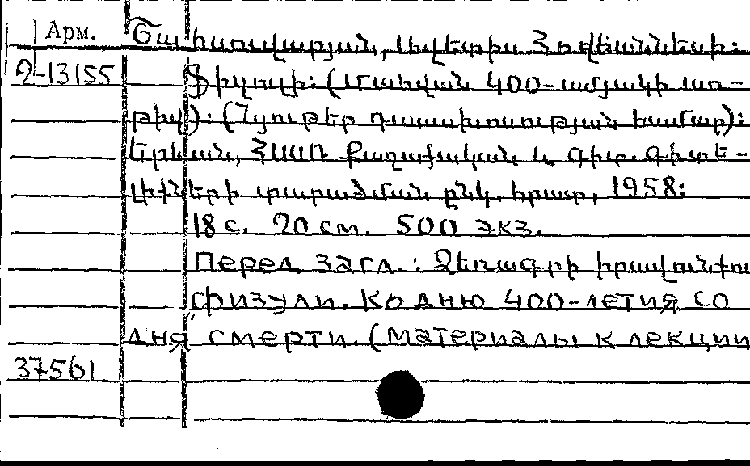 Арм.
Շահսուվարյան, Ավետիս Հովհաննեսի:
2-13155
Ֆիզուլի: (Մահվան 400-ամյակի առ-
թիվ): (Նյութեր դասախոսության համար):
Երևան, ՀՍՍՌ Քաղաքական և գիտ. գիտե-
լիքների տարածման ընկ. հրատ, 1958:
18 с. 20 см. 500 экз.
Перед загл.: Ձեռագրի իրավունքով
Физули. Ко дню 400-летия со
дня смерти. (Материалы к лекции
37561